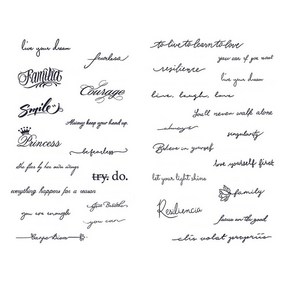 live your dream
fearless
Familia
Courage
Smile
Always keep your head up.
Princess
be fearless
she flies by her own wings
try. do.
everything happens for a reason
you are enough
you can
Carpe diem
to live to learn to love
you can if you want
resilience
live your dream
live, laugh, love
You'll never walk alone
always
singularity
Believe in yourself
love yourself first
let your light shine
family
Resiliencia
focus on the good
alis volat propriis